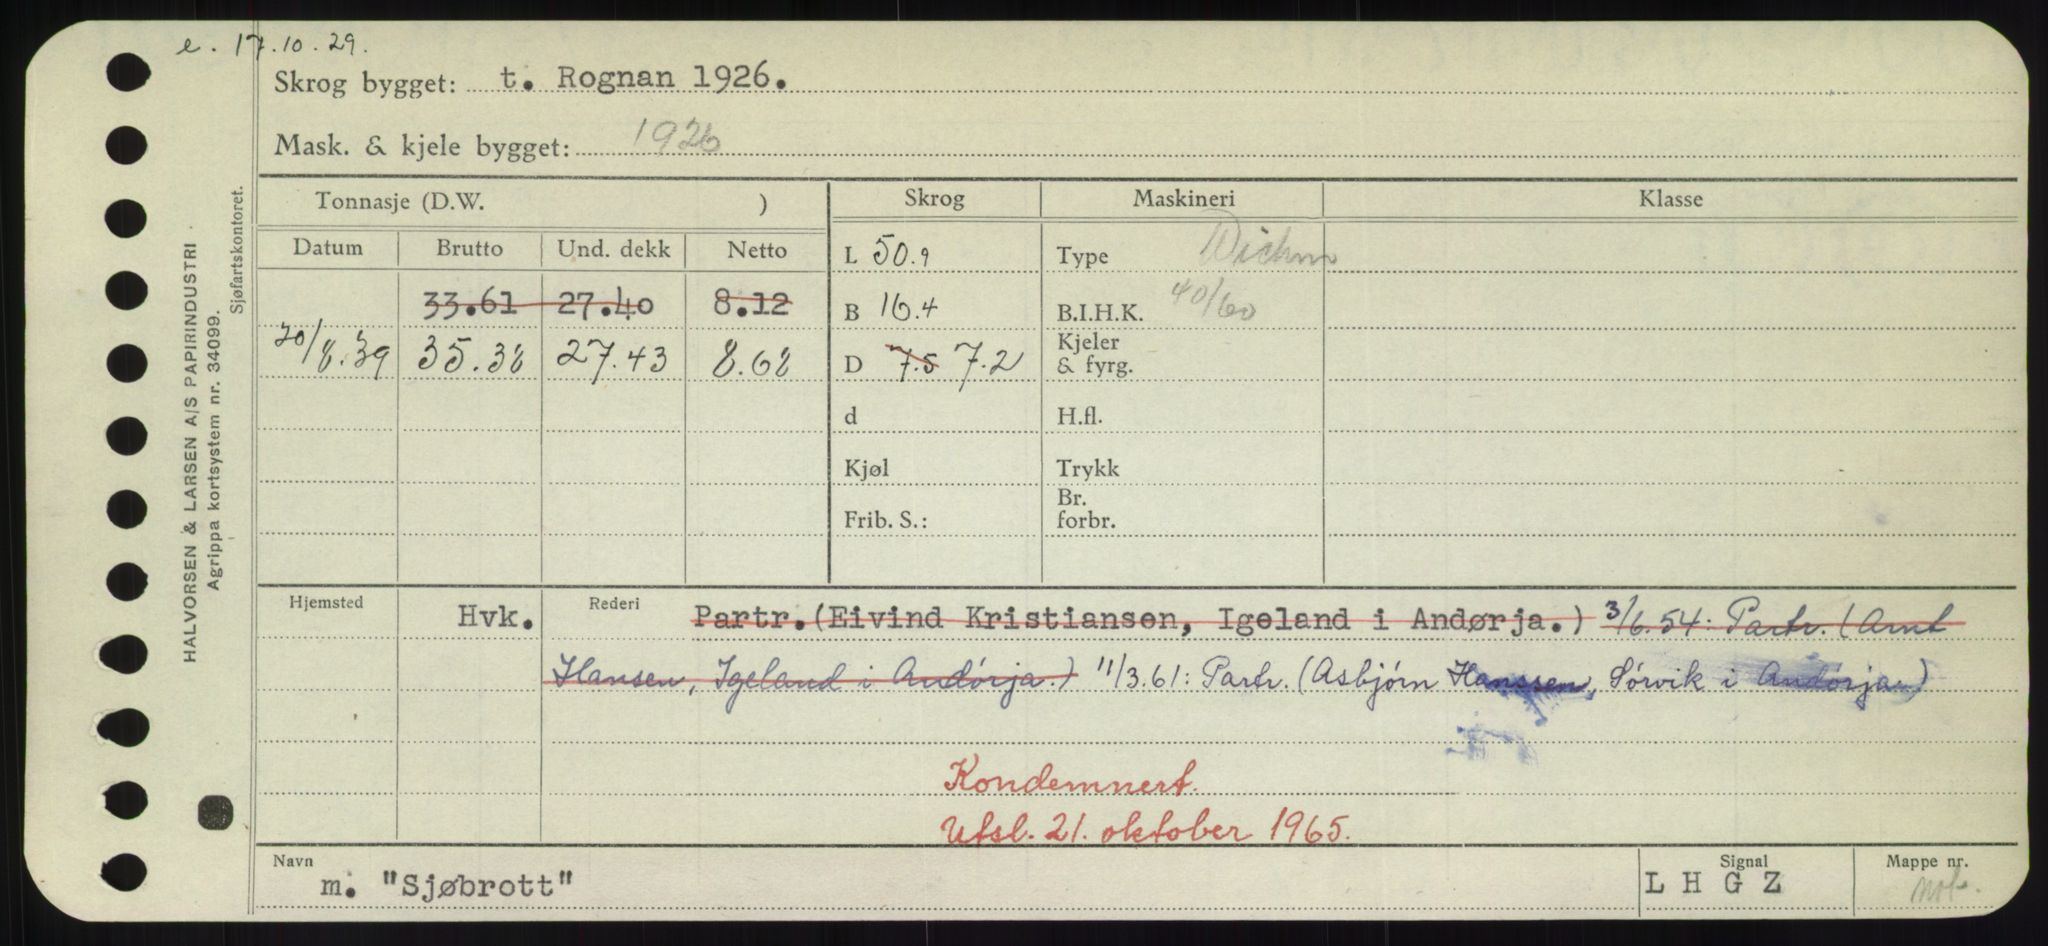 e. 17.10.29.
Skrog bygget: t. Rognan 1926.
Mask. & kjele bygget: 1926
Tonnasje (D.W. ) Skrog Maskineri Klasse
Datum Brutto Und. dekk Netto
L 50.9 Type Wichm
33.61 27.40 8.12 B 16.4 B.I.H.K. 40/60
20/8.39 35.38 27.43 8.68 D 7.5 7.2 Kjeler & fyrg.
d H.fl.
Kjøl Trykk
Frib. S.: Br. forbr.
Hjemsted Hvk. Rederi Partr.(Eivind Kristiansen, Igeland i Andørja.) 3/6.54: Partr. (Arnt
Hansen, Igeland i Andørja.) 11/3.61: Partr. (Asbjørn Hanssen, Sørvik i Andørja.)
Kondemnert.
Utsl. 21. oktober 1965.
Navn Signal Mappe nr.
m. "Sjøbrott" L H G Z
HALVORSEN & LARSEN A/S PAPIRINDUSTRI
Agrippa kortsystem nr. 34099.
Sjøfartskontoret.